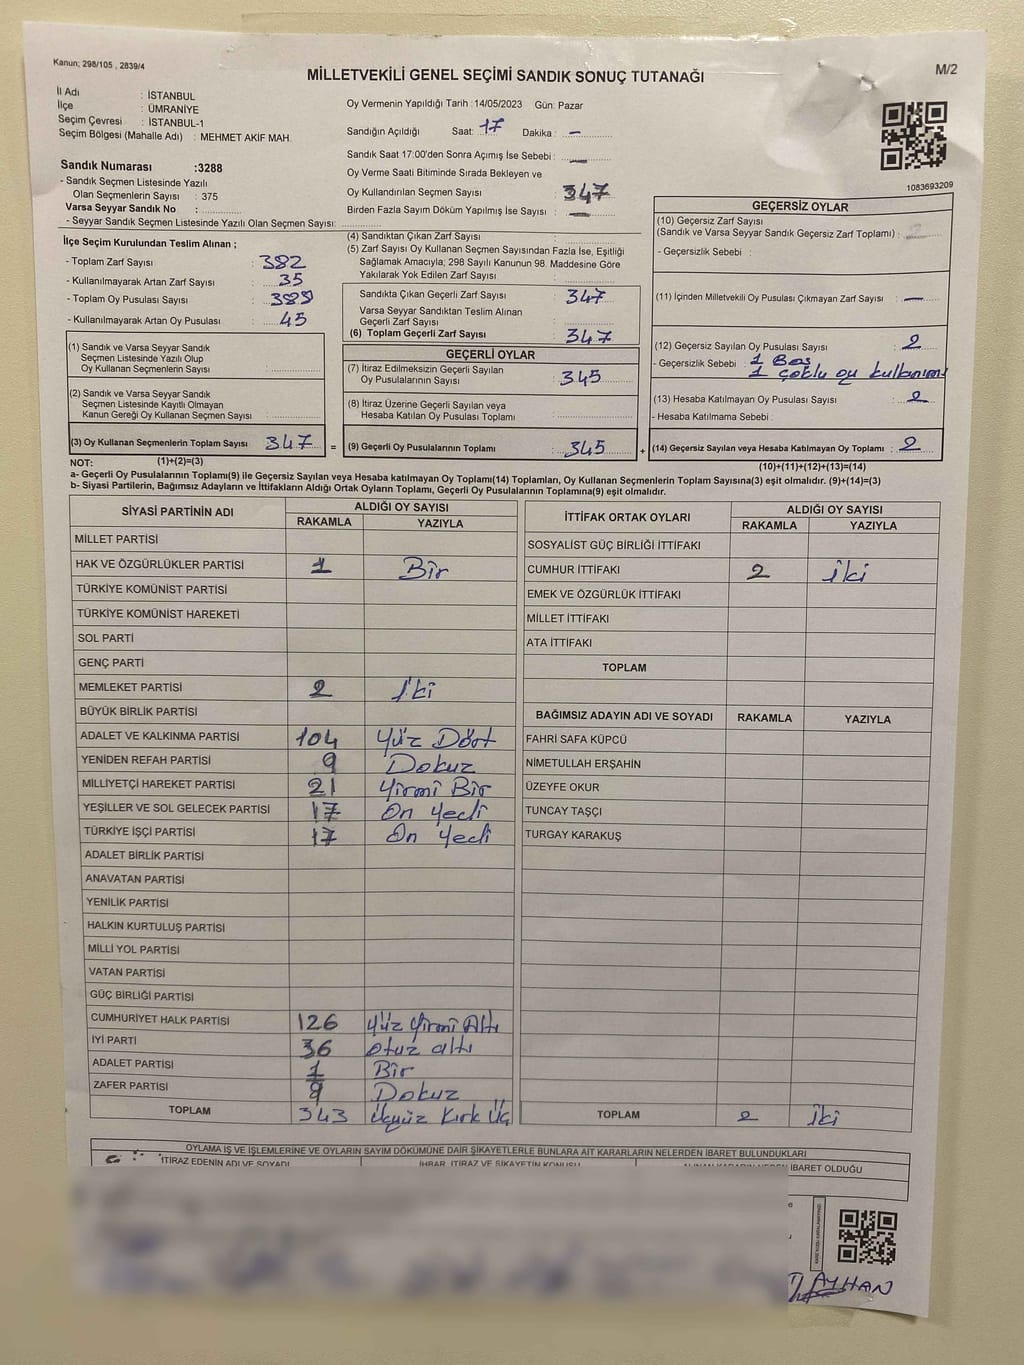 Kanun; 298/105 , 2839/4
MİLLETVEKİLİ GENEL SEÇİMİ SANDIK SONUÇ TUTANAĞI
M/2
İl Adı : İSTANBUL
İlçe : ÜMRANİYE
Seçim Çevresi : İSTANBUL-1
Seçim Bölgesi (Mahalle Adı) : MEHMET AKİF MAH.
Sandık Numarası :3288
- Sandık Seçmen Listesinde Yazılı
Olan Seçmenlerin Sayısı : 375
Varsa Seyyar Sandık No :
- Seyyar Sandık Seçmen Listesinde Yazılı Olan Seçmen Sayısı:
İlçe Seçim Kurulundan Teslim Alınan ;
- Toplam Zarf Sayısı : 382
- Kullanılmayarak Artan Zarf Sayısı : 35
- Toplam Oy Pusulası Sayısı :
- Kullanılmayarak Artan Oy Pusulası : 45
(1) Sandık ve Varsa Seyyar Sandık
Seçmen Listesinde Yazılı Olup
Oy Kullanan Seçmenlerin Sayısı :
(2) Sandık ve Varsa Seyyar Sandık
Seçmen Listesinde Kayıtlı Olmayan
Kanun Gereği Oy Kullanan Seçmen Sayısı :
(3) Oy Kullanan Seçmenlerin Toplam Sayısı : 347
(1)+(2)=(3)
Oy Vermenin Yapıldığı Tarih :14/05/2023 Gün: Pazar
Sandığın Açıldığı Saat: 17 Dakika : –
Sandık Saat 17:00'den Sonra Açımış İse Sebebi : –
Oy Verme Saati Bitiminde Sırada Bekleyen ve
Oy Kullandırılan Seçmen Sayısı : 347
Birden Fazla Sayım Döküm Yapılmış İse Sayısı : –
(4) Sandıktan Çıkan Zarf Sayısı :
(5) Zarf Sayısı Oy Kullanan Seçmen Sayısından Fazla İse, Eşitliği
Sağlamak Amacıyla; 298 Sayılı Kanunun 98. Maddesine Göre
Yakılarak Yok Edilen Zarf Sayısı :
Sandıkta Çıkan Geçerli Zarf Sayısı : 347
Varsa Seyyar Sandıktan Teslim Alınan
Geçerli Zarf Sayısı :
(6) Toplam Geçerli Zarf Sayısı : 347
GEÇERLİ OYLAR
(7) İtiraz Edilmeksizin Geçerli Sayılan
Oy Pusulalarının Sayısı : 345
(8) İtiraz Üzerine Geçerli Sayılan veya
Hesaba Katılan Oy Pusulası Toplamı :
= (9) Geçerli Oy Pusulalarının Toplamı : 345 +
1083693209
GEÇERSİZ OYLAR
(10) Geçersiz Zarf Sayısı
(Sandık ve Varsa Seyyar Sandık Geçersiz Zarf Toplamı) :
- Geçersizlik Sebebi :
(11) İçinden Milletvekili Oy Pusulası Çıkmayan Zarf Sayısı : –
(12) Geçersiz Sayılan Oy Pusulası Sayısı : 2
- Geçersizlik Sebebi : 1 Boş
1 çoklu oy kullanımı
(13) Hesaba Katılmayan Oy Pusulası Sayısı : 2
- Hesaba Katılmama Sebebi :
(14) Geçersiz Sayılan veya Hesaba Katılmayan Oy Toplamı : 2
(10)+(11)+(12)+(13)=(14)
NOT:
a- Geçerli Oy Pusulalarının Toplamı(9) ile Geçersiz Sayılan veya Hesaba katılmayan Oy Toplamı(14) Toplamları, Oy Kullanan Seçmenlerin Toplam Sayısına(3) eşit olmalıdır. (9)+(14)=(3)
b- Siyasi Partilerin, Bağımsız Adayların ve İttifakların Aldığı Ortak Oyların Toplamı, Geçerli Oy Pusulalarının Toplamına(9) eşit olmalıdır.
SİYASİ PARTİNİN ADI ALDIĞI OY SAYISI
RAKAMLA YAZIYLA
MİLLET PARTİSİ
HAK VE ÖZGÜRLÜKLER PARTİSİ 1 Bir
TÜRKİYE KOMÜNİST PARTİSİ
TÜRKİYE KOMÜNİST HAREKETİ
SOL PARTİ
GENÇ PARTİ
MEMLEKET PARTİSİ 2 İki
BÜYÜK BİRLİK PARTİSİ
ADALET VE KALKINMA PARTİSİ 104 Yüz Dört
YENİDEN REFAH PARTİSİ 9 Dokuz
MİLLİYETÇİ HAREKET PARTİSİ 21 Yirmi Bir
YEŞİLLER VE SOL GELECEK PARTİSİ 17 On Yedi
TÜRKİYE İŞÇİ PARTİSİ 17 On Yedi
ADALET BİRLİK PARTİSİ
ANAVATAN PARTİSİ
YENİLİK PARTİSİ
HALKIN KURTULUŞ PARTİSİ
MİLLİ YOL PARTİSİ
VATAN PARTİSİ
GÜÇ BİRLİĞİ PARTİSİ
CUMHURİYET HALK PARTİSİ 126 Yüz Yirmi Altı
İYİ PARTİ 36 otuz altı
ADALET PARTİSİ 1 Bir
ZAFER PARTİSİ 9 Dokuz
TOPLAM 343 Üçyüz Kırk Üç
İTTİFAK ORTAK OYLARI ALDIĞI OY SAYISI
RAKAMLA YAZIYLA
SOSYALİST GÜÇ BİRLİĞİ İTTİFAKI
CUMHUR İTTİFAKI 2 iki
EMEK VE ÖZGÜRLÜK İTTİFAKI
MİLLET İTTİFAKI
ATA İTTİFAKI
TOPLAM
BAĞIMSIZ ADAYIN ADI VE SOYADI RAKAMLA YAZIYLA
FAHRİ SAFA KÜPCÜ
NİMETULLAH ERŞAHİN
ÜZEYFE OKUR
TUNCAY TAŞÇI
TURGAY KARAKUŞ
TOPLAM 2 iki
OYLAMA İŞ VE İŞLEMLERİNE VE OYLARIN SAYIM DÖKÜMÜNE DAİR ŞİKAYETLERLE BUNLARA AİT KARARLARIN NELERDEN İBARET BULUNDUKLARI
İTİRAZ EDENİN ADI VE SOYADI İHBAR, İTİRAZ VE ŞİKAYETİN KONUSU ALINAN KARARIN NEDEN İBARET OLDUĞU
AYHAN